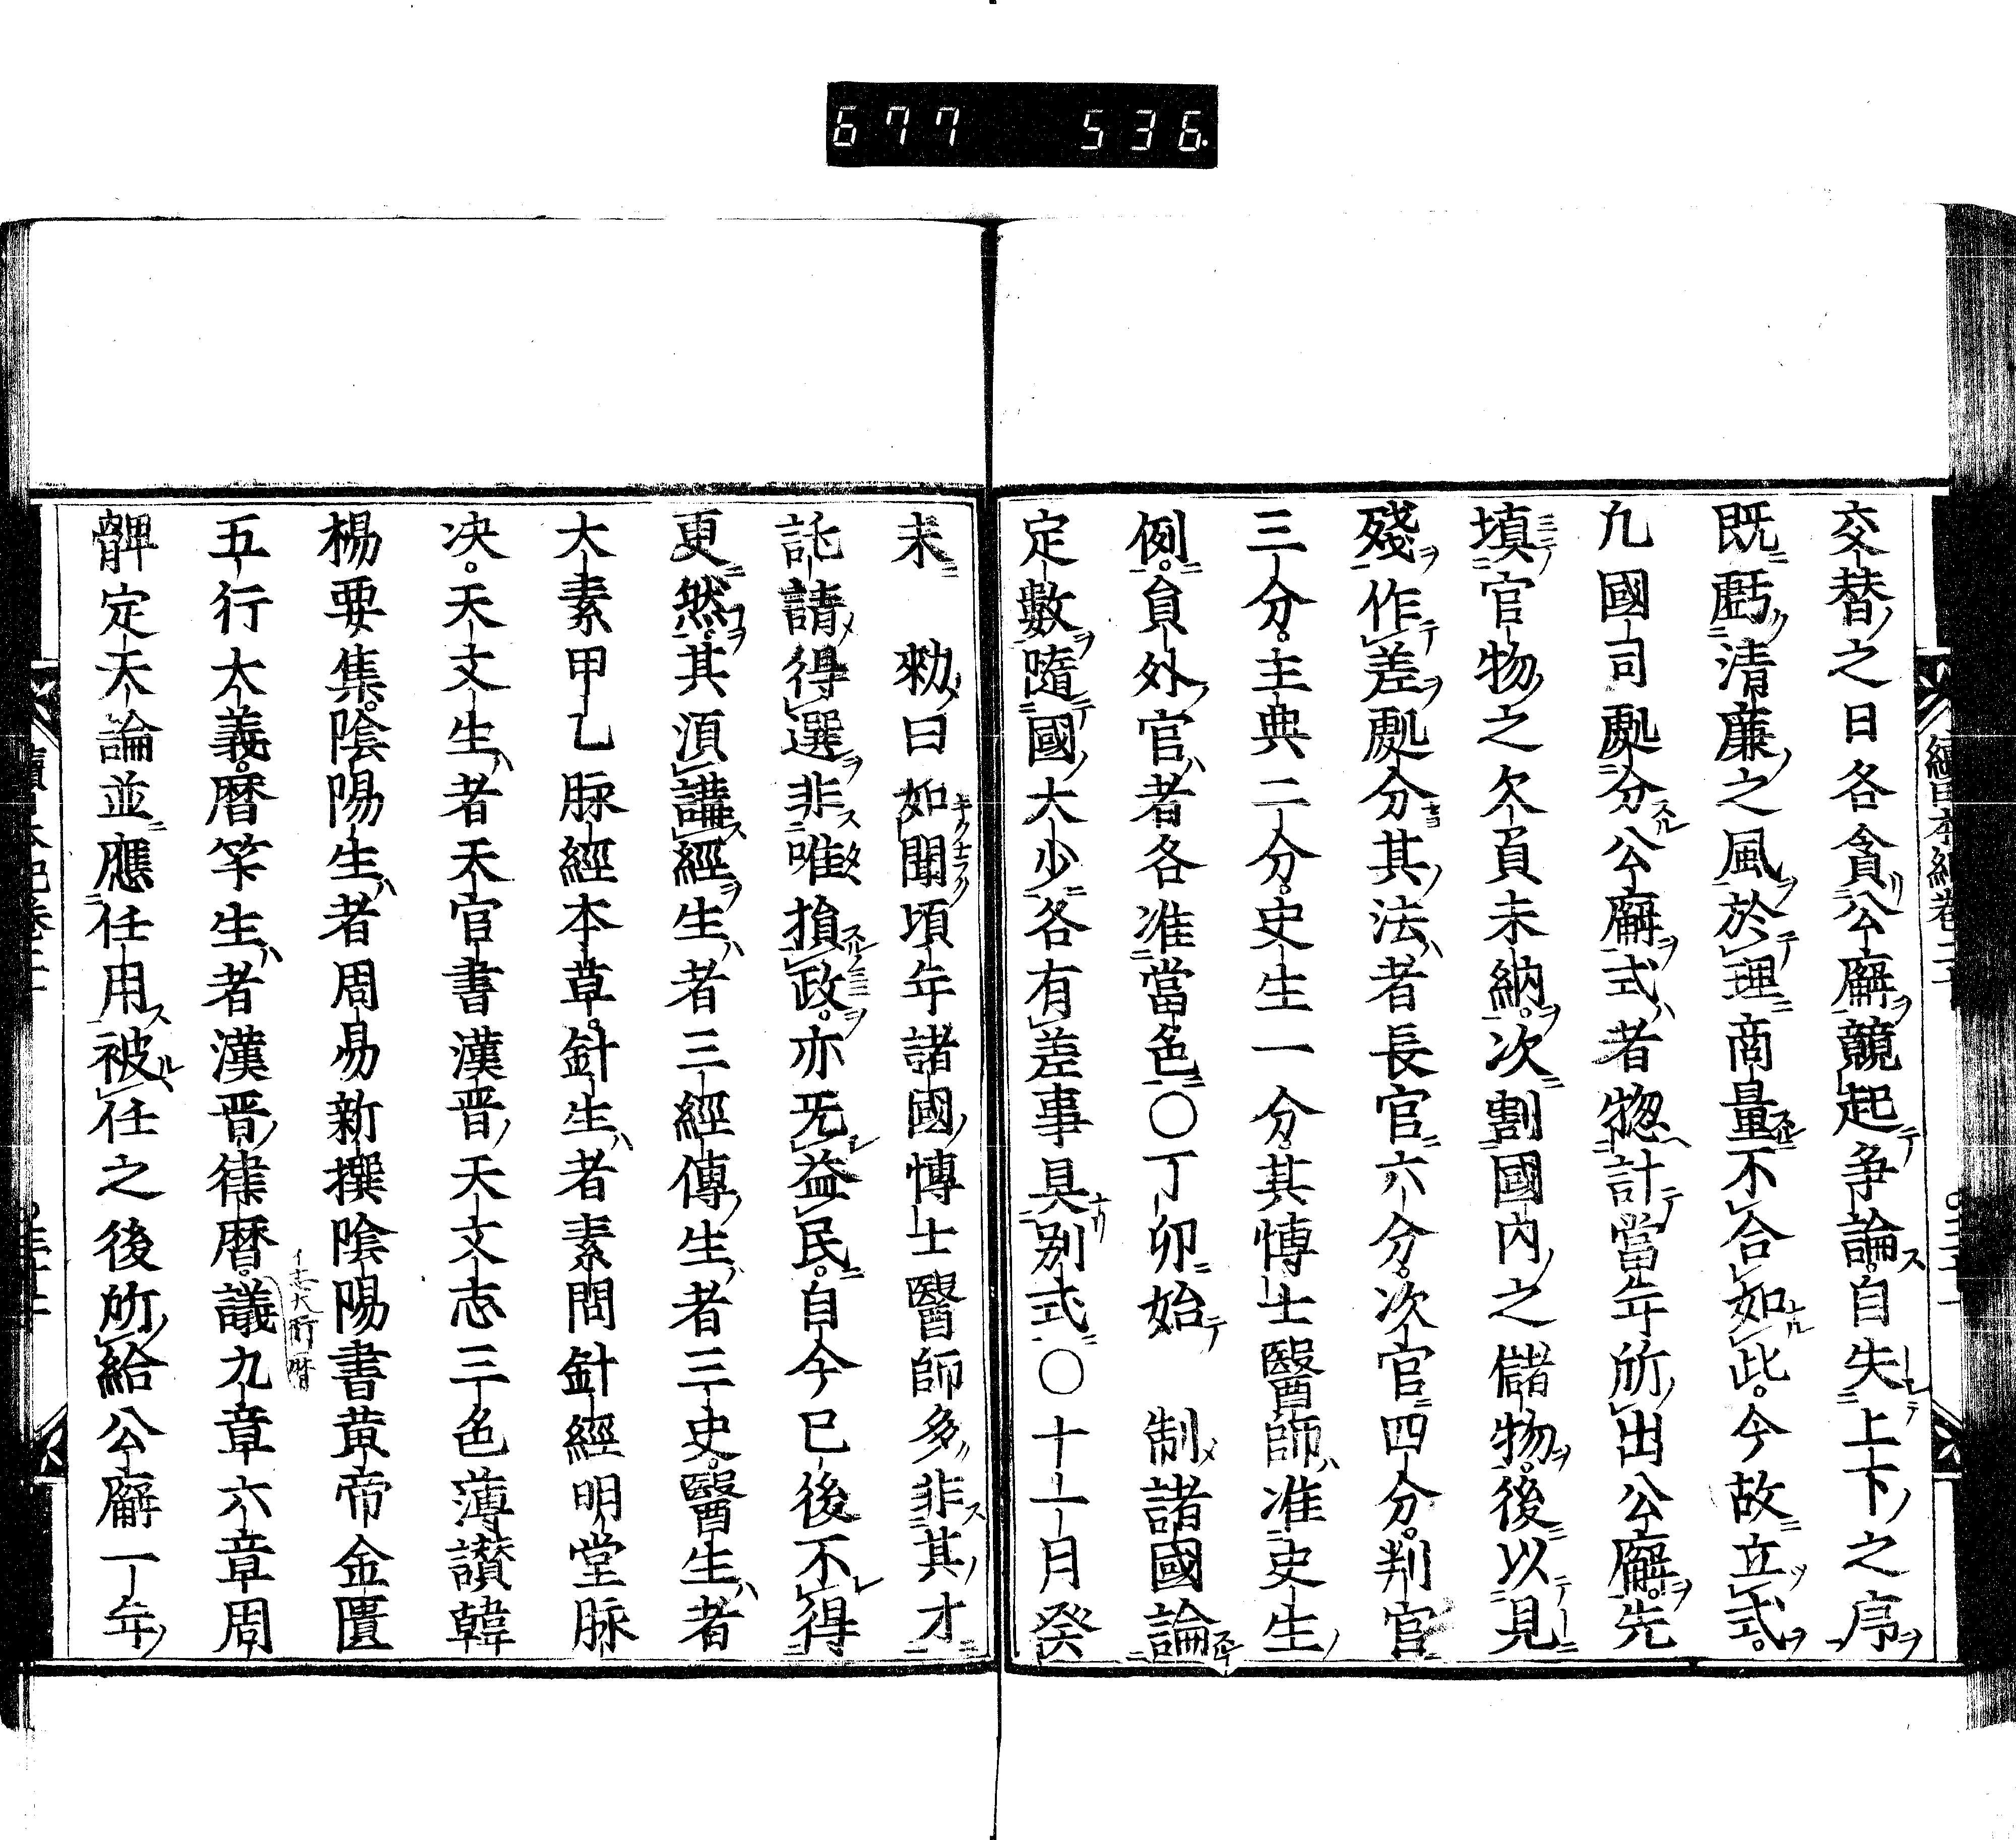 677 536.
交替之日各貪公廨競起争論自失上下之序
既虧清廉之風於理商量不合如此。今故立式。
凢國司處分公廨式者惣計當年所出公廨。先
填官物之欠負未納。次割國内之儲物。後以見
殘作差處分其法者長官六分。次官四分。判官
三分。主典二分。史生一分。其博士醫師准史生
例。貟外官者各准當色〇丁卯始 制諸國論
定數隨國大少各有差事具別式〇十一月癸
未 勑曰如聞頃年諸國博士醫師多非其才
託請得選非唯損政。亦无益民。自今已後不得
更然。其湏講經生者三經傳生者三史。醫生者
大素甲乙脉經本草。針生者素問針經明堂脉
决。天文生者天官書漢晋天文志三色薄讃韓
楊要集。陰陽生者周易新撰陰陽書黄帝金匱
五行大義。暦笇生者漢晋律暦。議九章六章周
志大衍暦
髀定天論並應任用被任之後所給公廨一年